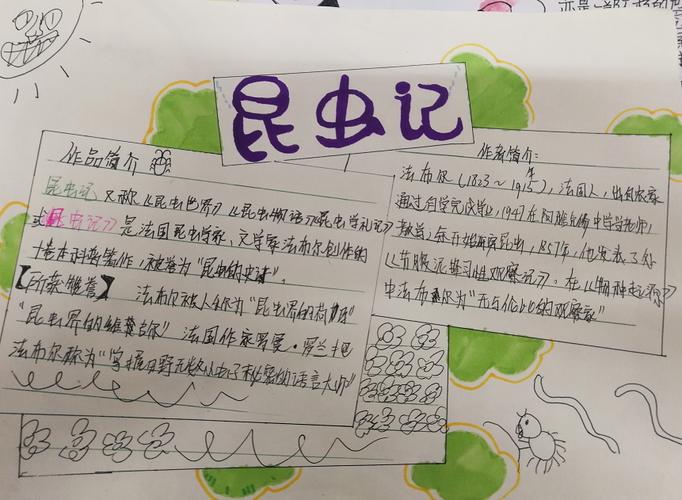 昆虫记
作品简介
昆虫记 又称《昆虫世界》《昆虫物语》《昆虫学札记》
或《昆虫记》是法国昆虫学家、文学家法布尔创作的
十卷本科普著作，被誉为“昆虫的史诗”。
【所获雅誉】 法布尔被人称为“昆虫界的荷马”
“昆虫界的维吉尔” 法国作家罗曼·罗兰十把
法布尔称为“掌握田野无数小虫子秘密的语言大师”
作者简介：
法布尔（1823～1915年），法国人，出自农家
通过自学完成学业，
教学之余开始研究昆虫，1857年，他发表了
《节腹泥蜂习性观察记》。在《物种起源》
中法布尔为“无与伦比的观察家”